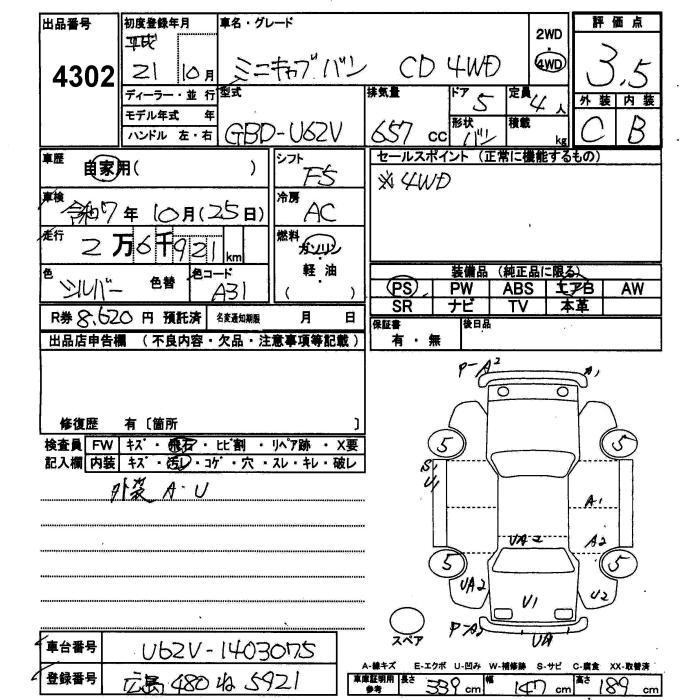 出品番号 4302
初度登録年月 平成 21 10月
車名・グレード ミニキャブバン CD 4WD
2WD 4WD
評価点 3.5
外装 C 内装 B
ディーラー・並行
モデル年式 年
ハンドル 左・右
型式 GBD-U62V
排気量 657 CC
ドア 5
定員 4 人
形状 バン
積載 kg
車歴 自家用( )
シフト F5
セールスポイント (正常に機能するもの)
※4WD
車検 令和7年 10月(25日)
冷房 AC
走行 2万6千921 km
燃料 ガソリン・軽・油 ( )
色 シルバー 色替
色コード A31
装備品 (純正品に限る)
PS PW ABS エアB AW
SR ナビ TV 本革
R券 8,620 円 預託済
名変通知期限 月 日
保証書 有・無
後日品
出品店申告欄 (不良内容・欠品・注意事項等記載)
修復歴 有〔箇所 〕
検査員 FW キズ・飛石・ヒビ割・リペア跡・X要
記入欄 内装 キズ・汚レ・コゲ・穴・スレ・キレ・破レ
外装 A・U
P-A2 A1
5 5
S1
U1
A1
UA2 A2
5 5
UA2 U1 U2
スペア
車台番号 U62V-1403075
登録番号 広島 480 ね 5921
A-線キズ E-エクボ U-凹み W-補修跡 S-サビ C-腐食 XX-取替済
車庫証明用参考 長さ 339 cm 幅 147 cm 高さ 189 cm